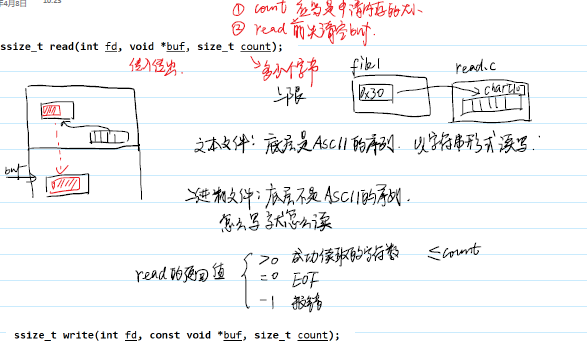 年4月8日 10:25
① count 应当是申请内存的大小
② read 前先清空buf.
ssize_t read(int fd, void *buf, size_t count);
传入传出.
多少个字节
上限
file1
read.c
0x30
buf
文本文件: 底层是ASCII的序列. 以字符串形式读写.
二进制文件: 底层不是ASCII的序列.
怎么写就怎么读
read的返回值
>0 成功读取的字符数 ≤count
=0 EOF
-1 报错
ssize_t write(int fd, const void *buf, size_t count);